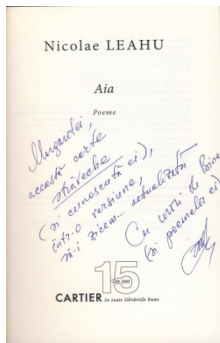 Nicolae LEAHU
Aia
Poeme
această carte
străveche
(și cunoscută ei),
într-o versiune,
să-i zicem... actualizată
Cu urări de bine
(și poemelor ei)
15
CARTIER în toate librăriile bune